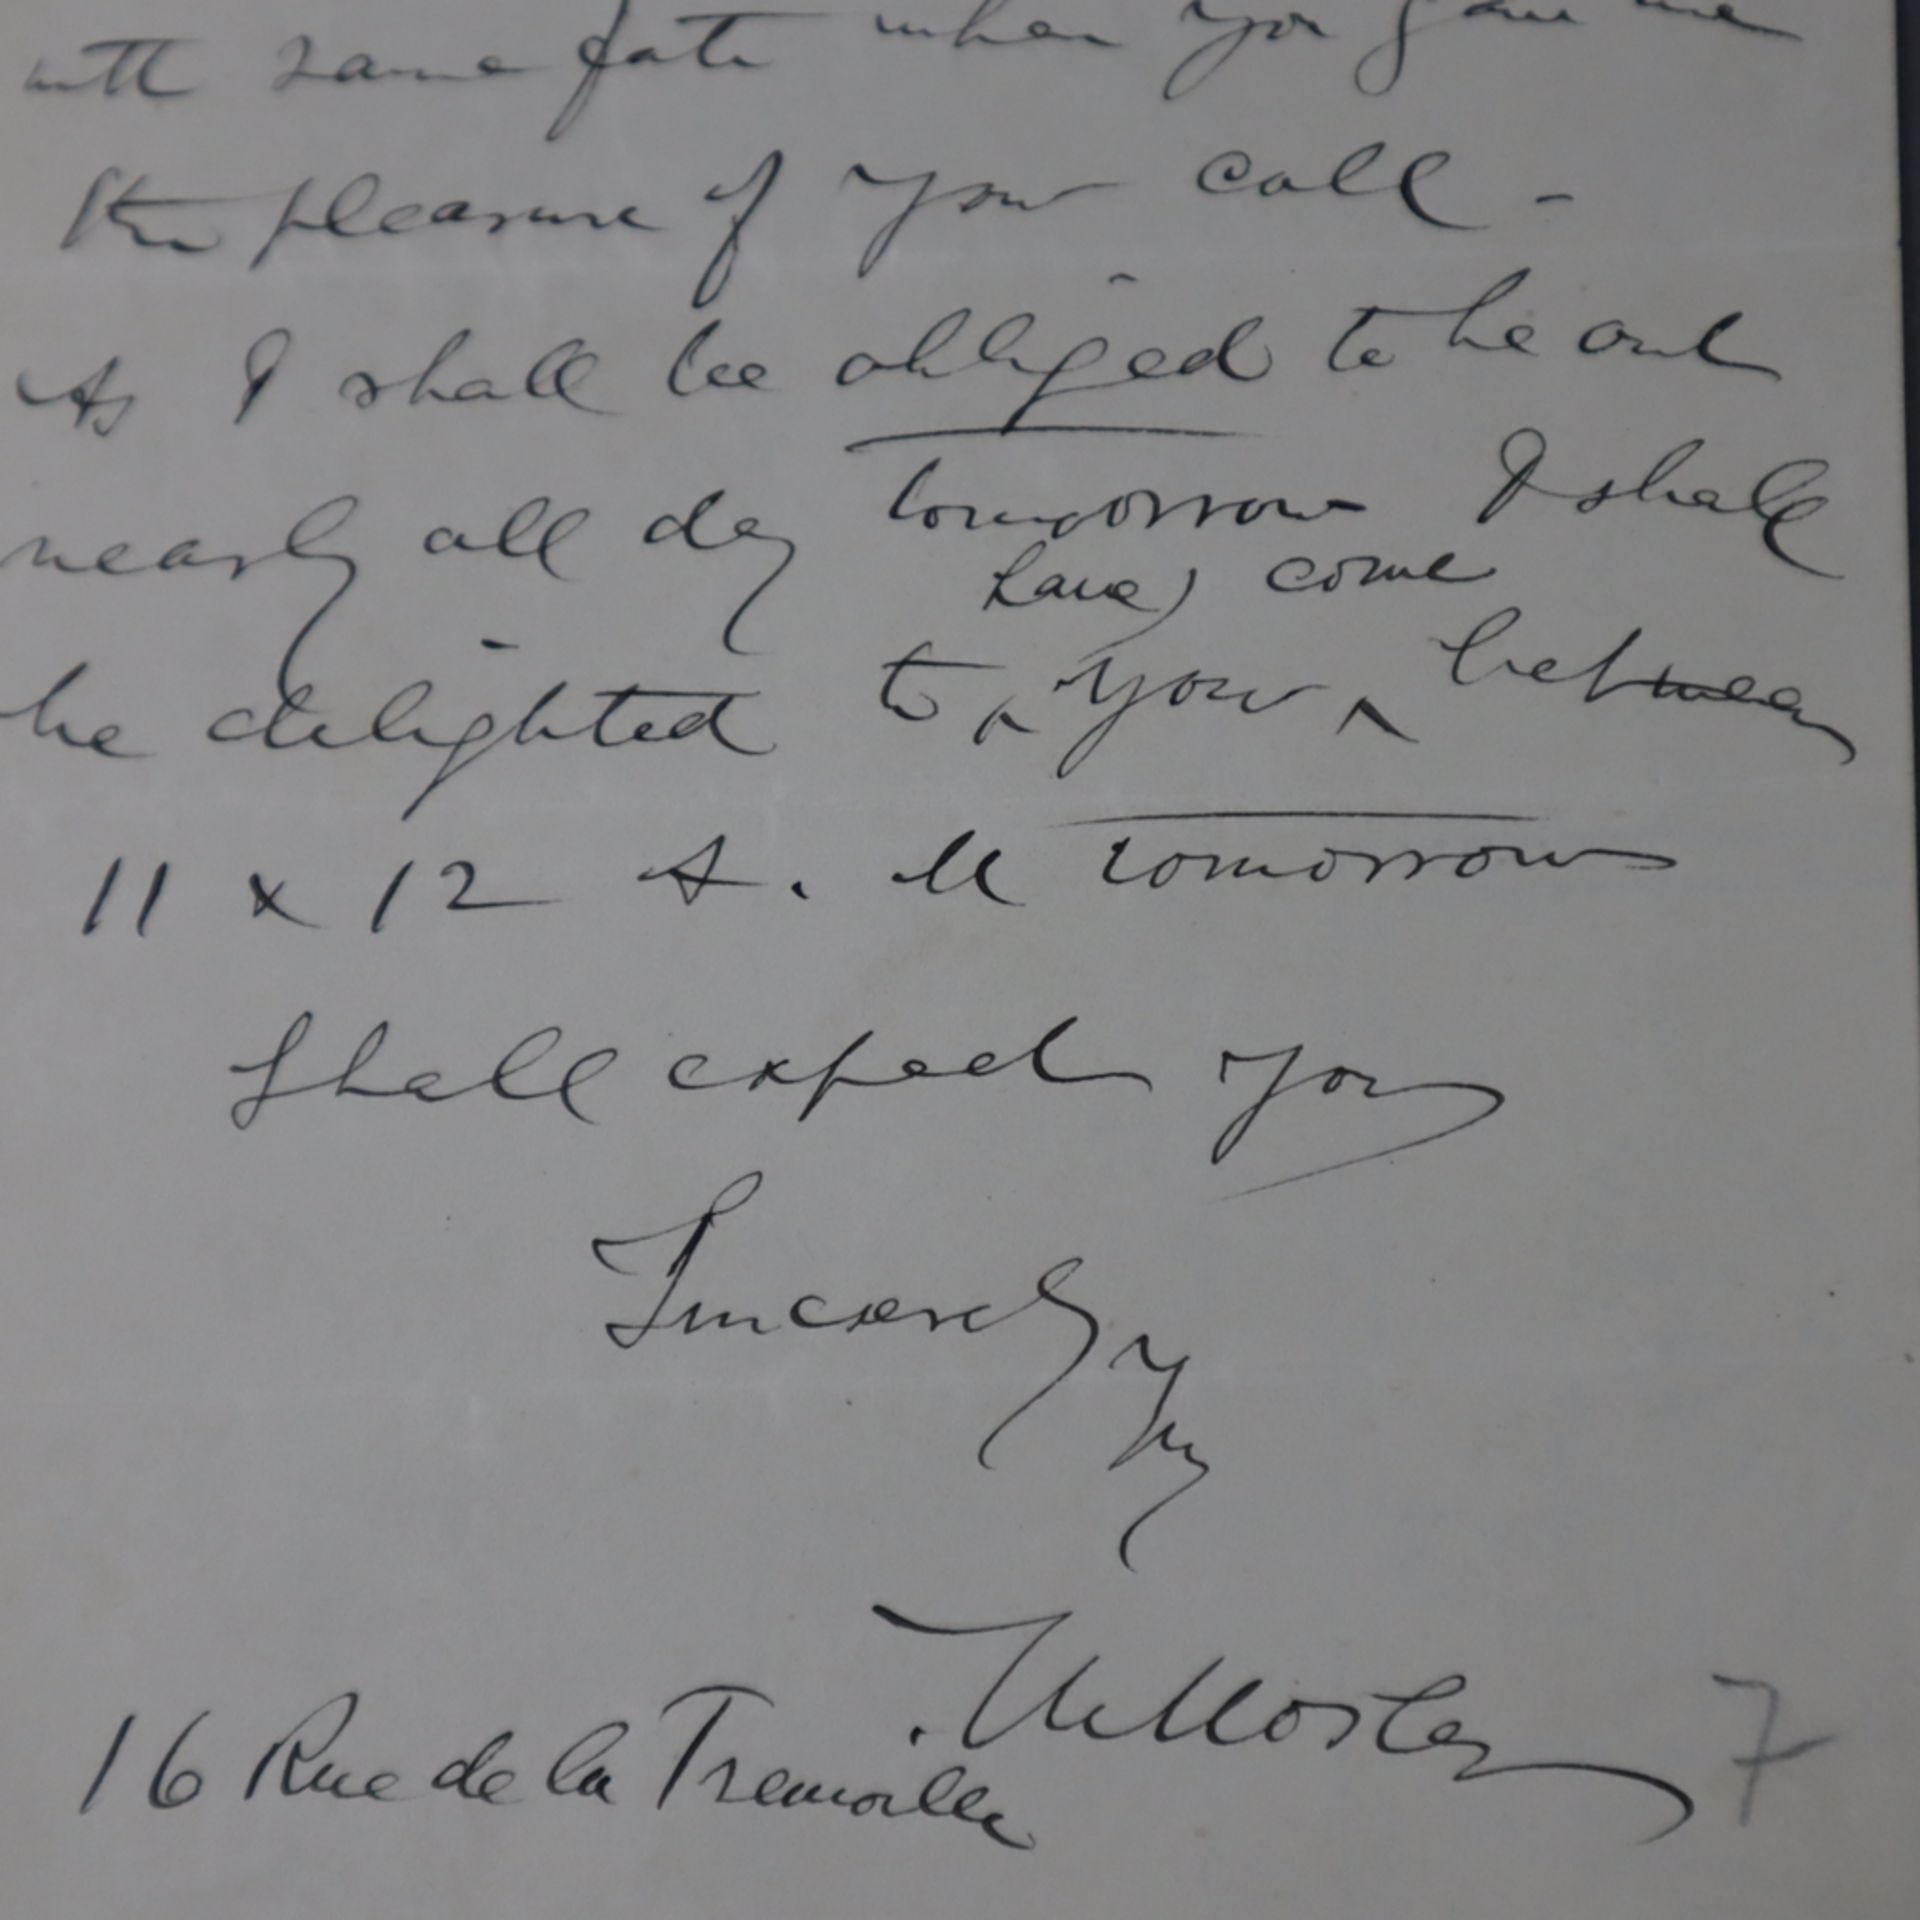 with same fate when you gave me
the pleasure of your call -
As I shall be obliged to be out
nearly all day tomorrow I shall
have, come
be delighted to ‸ you ‸ between
11 & 12 A. M tomorrow
Shall expect you
Sincerely Yrs
Mosley
16 Rue de la Tremoille
7